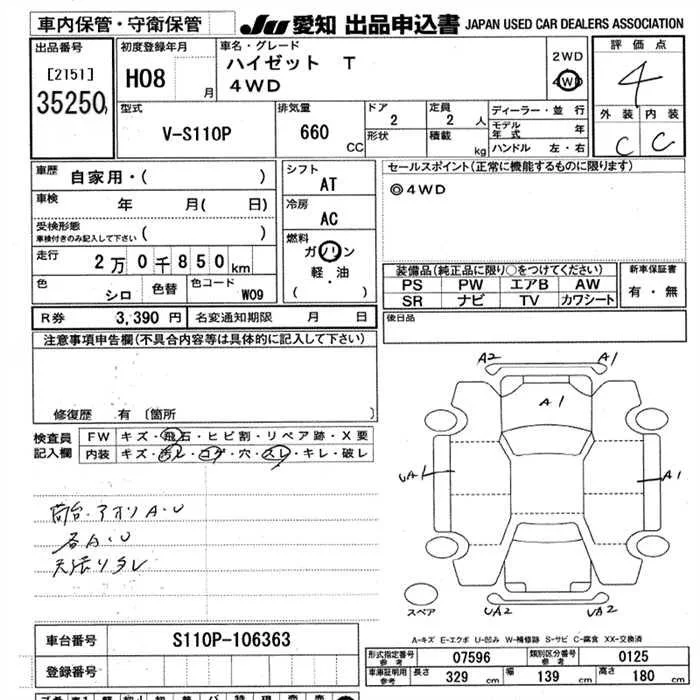 車内保管・守衛保管
JU 愛知 出品申込書 JAPAN USED CAR DEALERS ASSOCIATION
出品番号
[2151]
35250
初度登録年月
H08 月
車名・グレード
ハイゼット T
4WD
2WD
4WD
評価点
4
外装 内装
C C
型式
V-S110P
排気量
660 CC
ドア
2
形状
定員
2 人
積載 kg
ディーラー・並行
モデル年式 年
ハンドル 左・右
車歴
自家用・( )
車検 年 月( 日)
受検形態
車検付きのみ記入して下さい ( )
走行 2万0千850km
色 シロ
色替
色コード W09
シフト
AT
冷房
AC
燃料
ガソリン
軽・油
( )
セールスポイント(正常に機能するものに限ります)
◎4WD
装備品(純正品に限り○をつけてください)
PS PW エアB AW
SR ナビ TV カワシート
新車保証書
有・無
R券 3,390 円 名変通知期限 月 日
後日品
注意事項申告欄(不具合内容等は具体的に記入して下さい)
修復歴 有 〔箇所 〕
検査員記入欄
FW キズ・飛石・ヒビ割・リペア跡・X要
内装 キズ・汚レ・コゲ・穴・スレ・キレ・破レ
荷台・アオリA・U
各A・U
天張りタレ
A2 A1
A1
UA1 A1
UA2 UA2
スペア
A-キズ E-エクボ U-凹み W-補修跡 S-サビ C-腐食 XX-交換済
車台番号 S110P-106363
登録番号
形式指定番号 参考 07596 類別区分番号 参考 0125
車庫証明用 参考 長さ 329 cm 幅 139 cm 高さ 180 cm